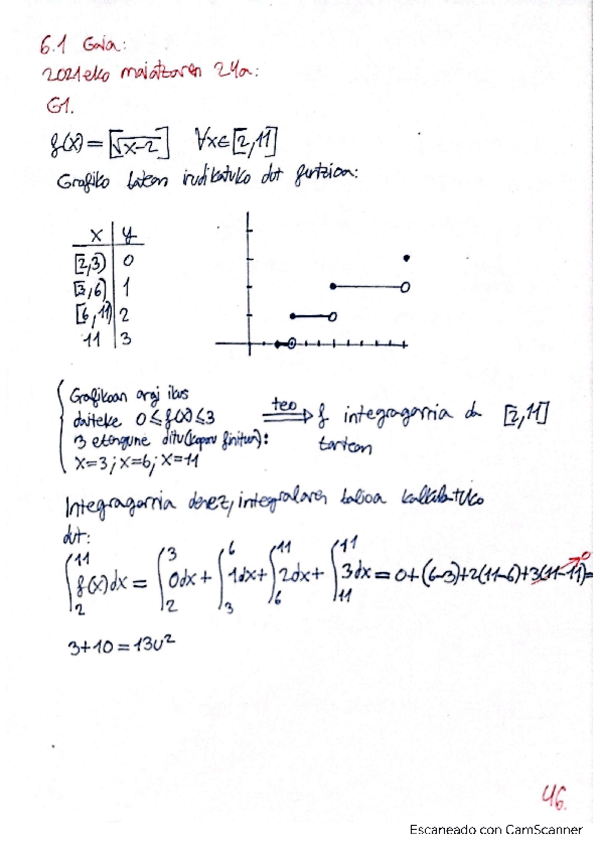 6.1 Gaia:
2021eko maiatzaren 24a:
G1.
f(x)=[√x-2] ∀x∈[2,11]
Grafiko batean irudikatuko dut funtzioa:
x | y
[2,3) | 0
[3,6) | 1
[6,11) | 2
11 | 3
Grafikoan argi ikus
daiteke 0≤f(x)≤3
3 etengune ditu (kopuru finitua):
x=3; x=6; x=11
teo ⟹ f integragarria da [2,11]
tartean
Integragarria denez, integralaren balioa kalkulatuko
dut:
∫₂¹¹ f(x)dx = ∫₂³ 0dx + ∫₃⁶ 1dx + ∫₆¹¹ 2dx + ∫₁₁¹¹ 3dx = 0+(6-3)+2(11-6)+3(11-11)=
0
3+10=13u²
46.
Escaneado con CamScanner